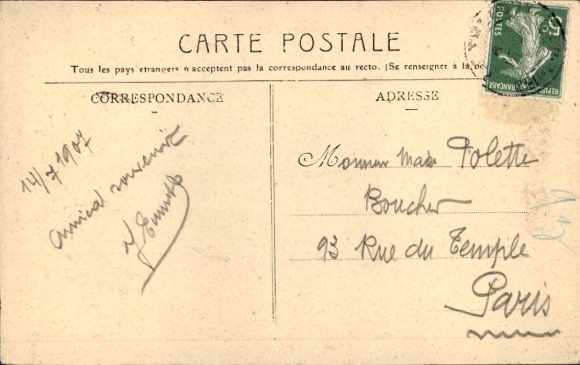 CARTE POSTALE
Tous les pays etrangers n'acceptent pas la correspondance au recto. (Se renseigner à la po
CORRESPONDANCE
14/7 1907
Amical souvenir
ADRESSE
Monsieur
Boucher
93 Rue du Temple
Paris
POSTES
5c
REPUBLIQUE FRANÇAISE